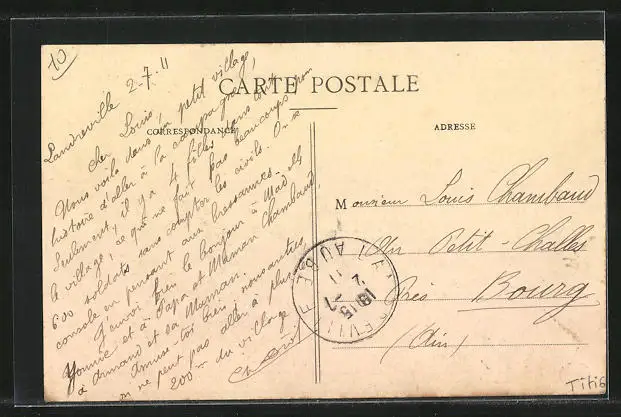 10
CARTE POSTALE
CORRESPONDANCE
ADRESSE
Landreville 2-7-11
Cher Louis,
Nous voilà dans un petit village,
histoire d'aller à la campagne,
Seulement, il y a 4 filles dans tout
le village, ce qui ne fait pas beaucoup pour
600 soldats sans compter les civils. On se
console en pensant aux bressannes.
J'envoie bien le bonjour à Mad. et
à Papa et Maman Chambaud,
à Armand et sa Maman.
Amuse-toi bien, nous autres
on ne peut pas aller à plus de
200 m du village
Monsieur Louis Chambaud
Au Petit-Challes
Près Bourg
(Ain)
AUBE
Titi6